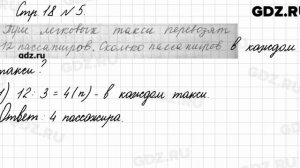 Стр. 18 № 5.
GDZ.RU
Три легковых такси перевозят
12 пассажиров. Сколько пассажиров в каждом
такси?
1) 12 : 3 = 4(п) - в каждом такси.
Ответ: 4 пассажира.
GDZ.RU
GDZ.RU